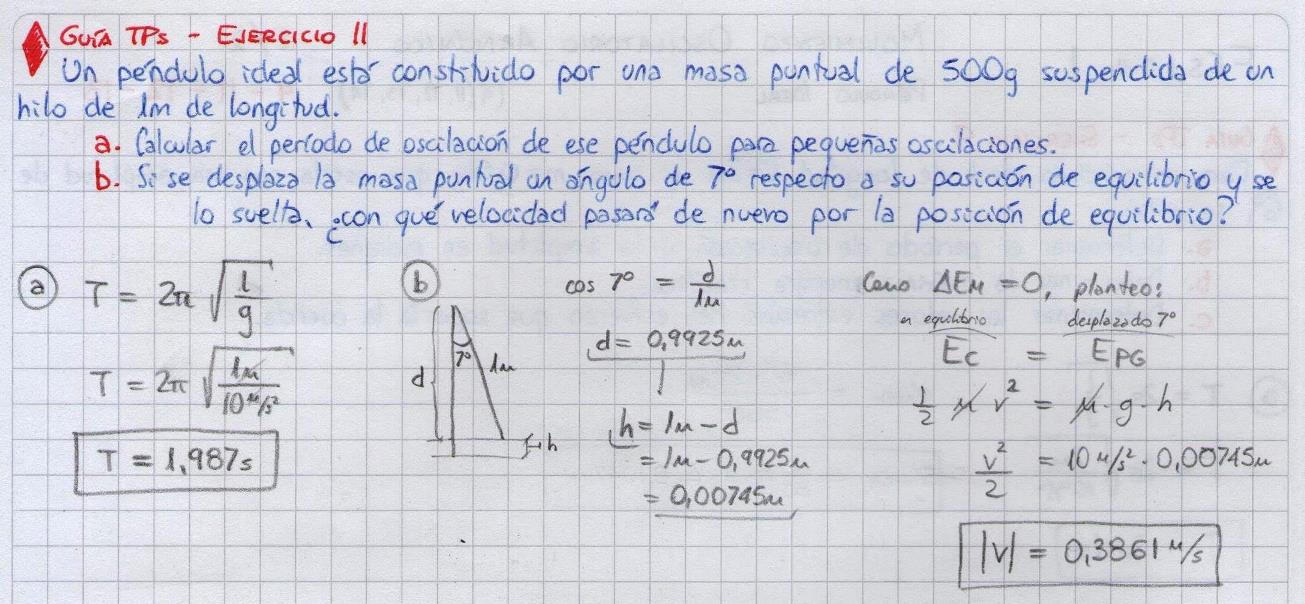 GUÍA TPs - EJERCICIO 11
Un péndulo ideal está constituido por una masa puntual de 500g suspendida de un
hilo de 1m de longitud.
a. Calcular el período de oscilación de ese péndulo para pequeñas oscilaciones.
b. Si se desplaza la masa puntual un ángulo de 7° respecto a su posición de equilibrio y se
lo suelta, ¿con qué velocidad pasará de nuevo por la posición de equilibrio?
a
T = 2π √(l/g)
T = 2π √(1m/10 m/s²)
T = 1,987s
b
7°
1m
d
h
cos 7° = d/1m
d = 0,9925m
h = 1m - d
= 1m - 0,9925m
= 0,00745m
Como ΔEM = 0, planteo:
en equilibrio desplazado 7°
Ec = EPG
1/2 m v² = m · g · h
v²/2 = 10 m/s² · 0,00745m
|v| = 0,3861 m/s